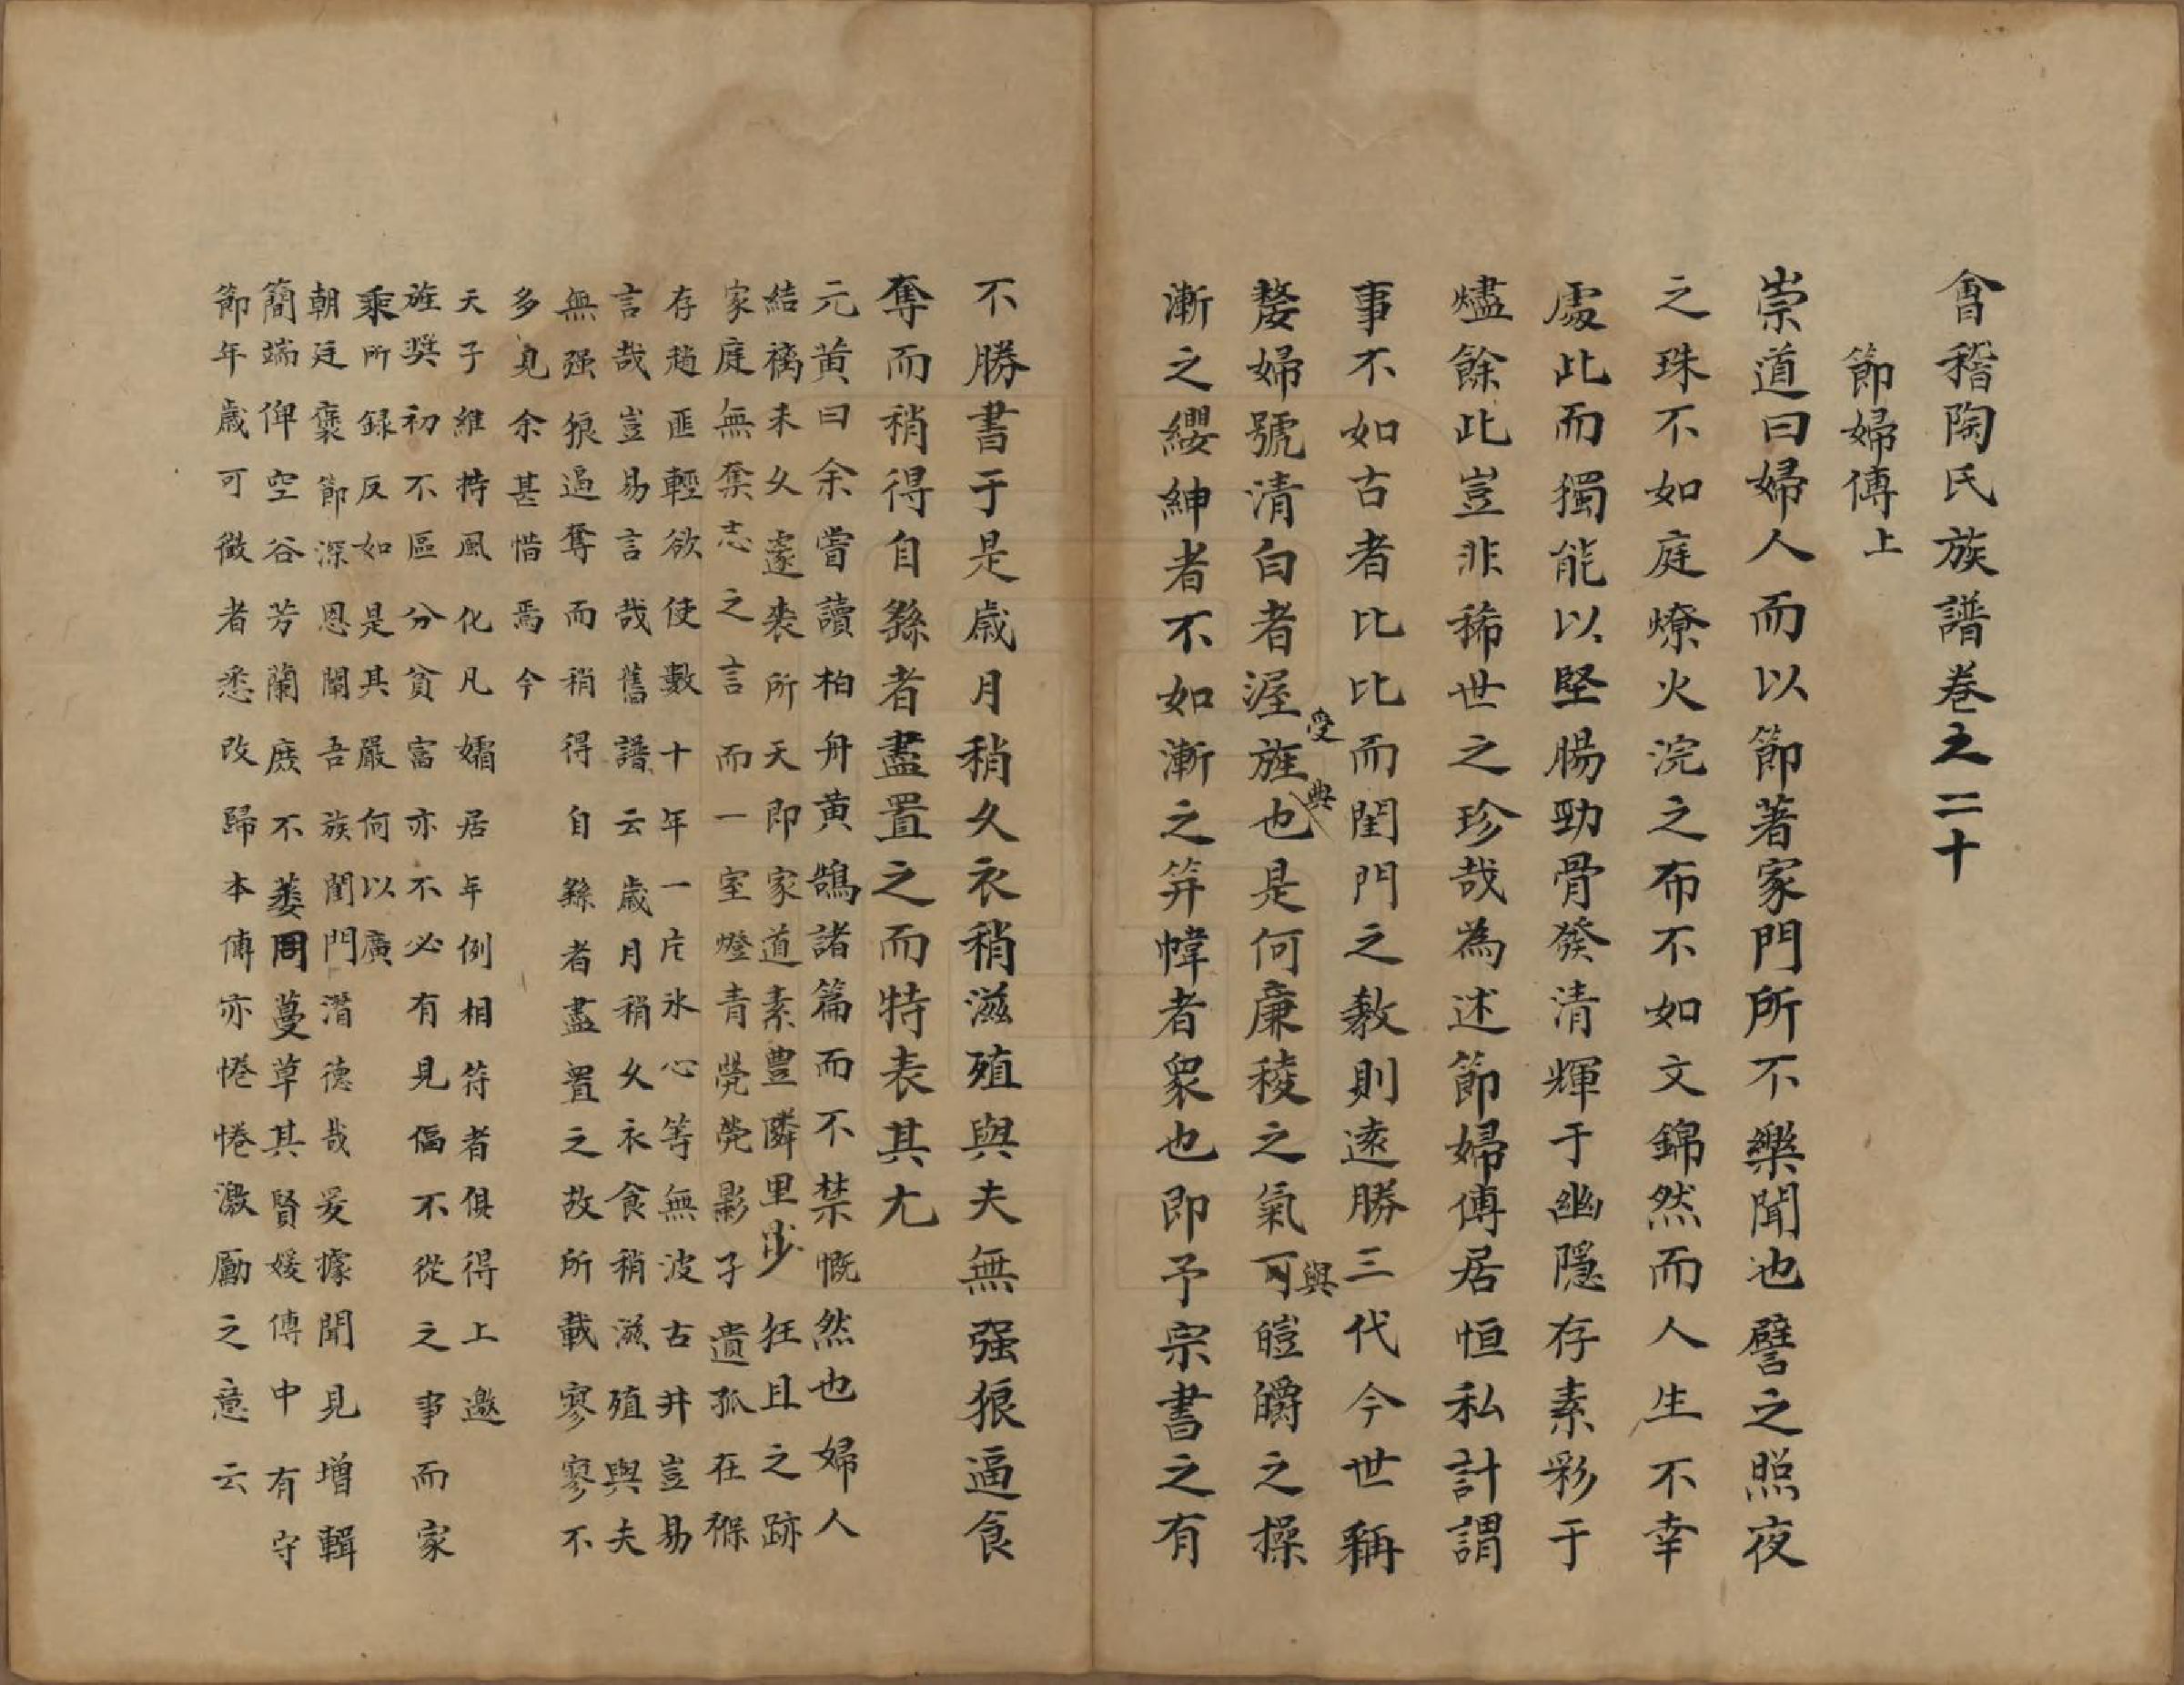 會稽陶氏族譜卷之二十
節婦傳上
崇道曰婦人而以節著家門所不樂聞也譬之照夜
之珠不如庭燎火浣之布不如文錦然而人生不幸
處此而獨能以堅腸勁骨發清輝于幽隱存素彩于
燼餘此豈非稀世之珍哉為述節婦傳居恒私計謂
事不如古者比比而閨門之教則遠勝三代今世稱
嫠婦號清白者渥受旌典也是何廉稜之氣可與皚皭之操
漸之纓紳者不如漸之笄幃者衆也即予宗書之有
不勝書于是歲月稍久衣稍滋殖與夫無强狼逼食
奪而稍得自繇者盡置之而特表其尤
元黄曰余嘗讀柏舟黄鵠諸篇而不禁慨然也婦人
結褵未久遽喪所天即家道素豊隣里少狂且之跡
家庭無奪志之言而一室燈青煢煢影子遺孤在褓
存趙匪輕欲使數十年一片氷心等無波古井豈易
言哉豈易言哉舊譜云歲月稍久衣食稍滋殖與夫
無强狼逼奪而稍得自繇者盡置之故所載寥寥不
多見余甚惜焉今
天子維持風化凡孀居年例相符者俱得上邀
旌奬初不區分貧富亦不必有見偪不從之事而家
乘所録反如是其嚴何以廣
朝廷褒節深恩闡吾族閨門潛德哉爰據聞見增輯
簡端俾空谷芳蘭庶不萎同蔓草其賢媛傳中有守
節年歲可徵者悉改歸本傳亦惓惓激勵之意云